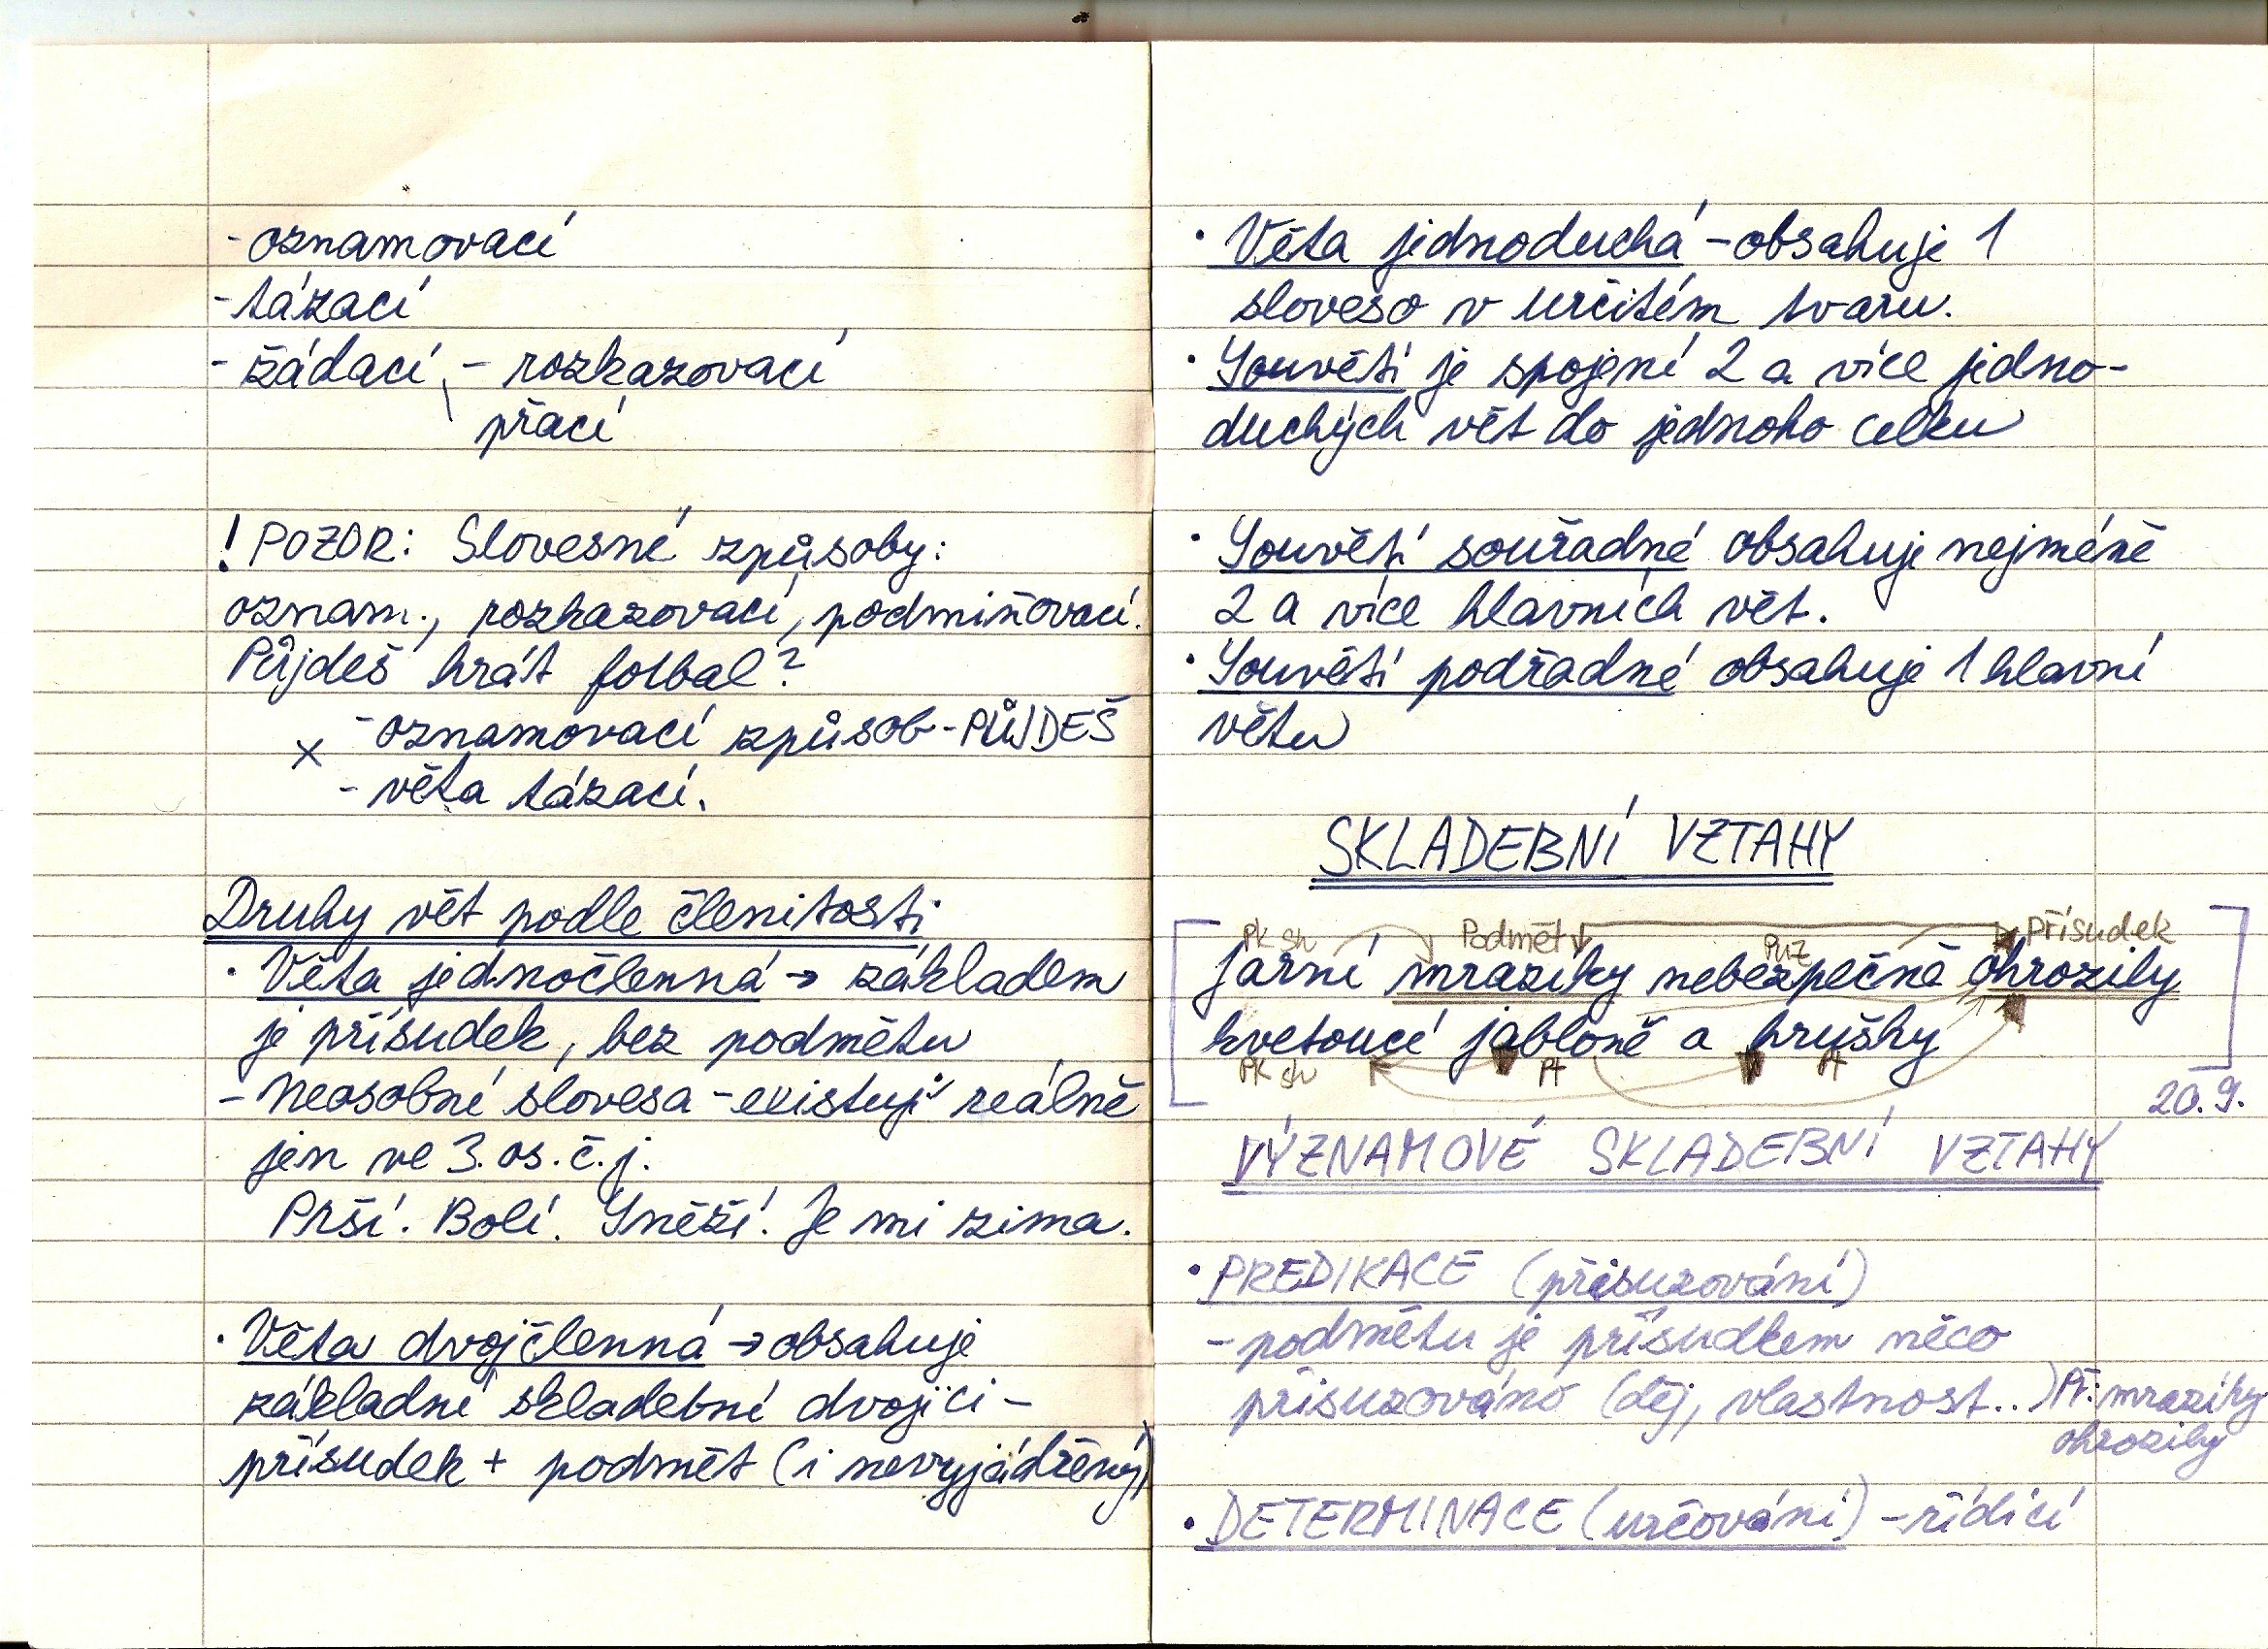 - oznamovací
- tázací
- žádací - rozkazovací
přací
! POZOR: Slovesné způsoby:
oznam., rozkazovací, podmiňovací.
Půjdeš hrát fotbal?
- oznamovací způsob - PŮJDEŠ
×
- věta tázací.
Druhy vět podle členitosti
• Věta jednočlenná → základem
je přísudek, bez podmětu
- Neosobní slovesa - existují reálně
jen ve 3. os. č. j.
Prší. Bolí. Sněží. Je mi zima.
• Věta dvojčlenná → obsahuje
základní skladební dvojici -
přísudek + podmět (i nevyjádřený)
• Věta jednoduchá - obsahuje 1
sloveso v určitém tvaru.
• Souvětí je spojení 2 a více jedno-
duchých vět do jednoho celku
• Souvětí souřadné obsahuje nejméně
2 a více hlavních vět.
• Souvětí podřadné obsahuje 1 hlavní
větu
SKLADEBNÍ VZTAHY
PK sh Podmět PUZ přísudek
Jarní mrazíky nebezpečně ohrozily
kvetoucí jabloně a hrušky
PK sh Pt Pt
20. 9.
VÝZNAMOVÉ SKLADEBNÍ VZTAHY
• PREDIKACE (přisuzování)
- podmětu je přísudkem něco
přisuzováno (děj, vlastnost...) Př: mrazíky
ohrozily
• DETERMINACE (určování) - řídící